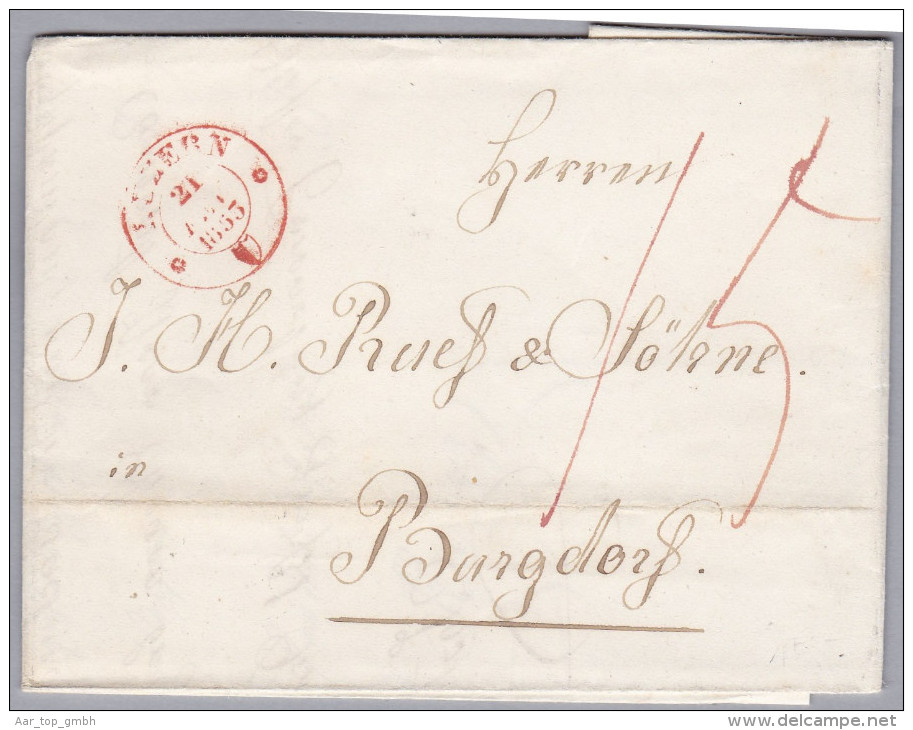 LUZERN
21
1853
Herren
15
J. H. Ruef & Söhne.
in
Burgdorf.
Aar_top_gmbh
www.delcampe.net